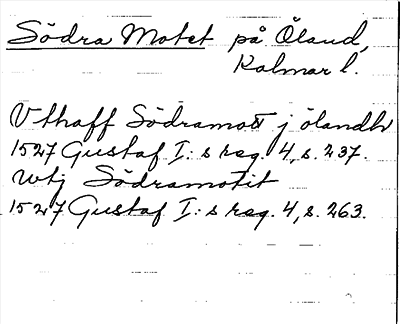 Södra Motet på Öland,
Kalmar l.
Vthaff Södramott j ölandh
1527 Gustaf I:s reg. 4, s. 237.
Wtj Södramotit
1527 Gustaf I:s reg. 4, s. 263.